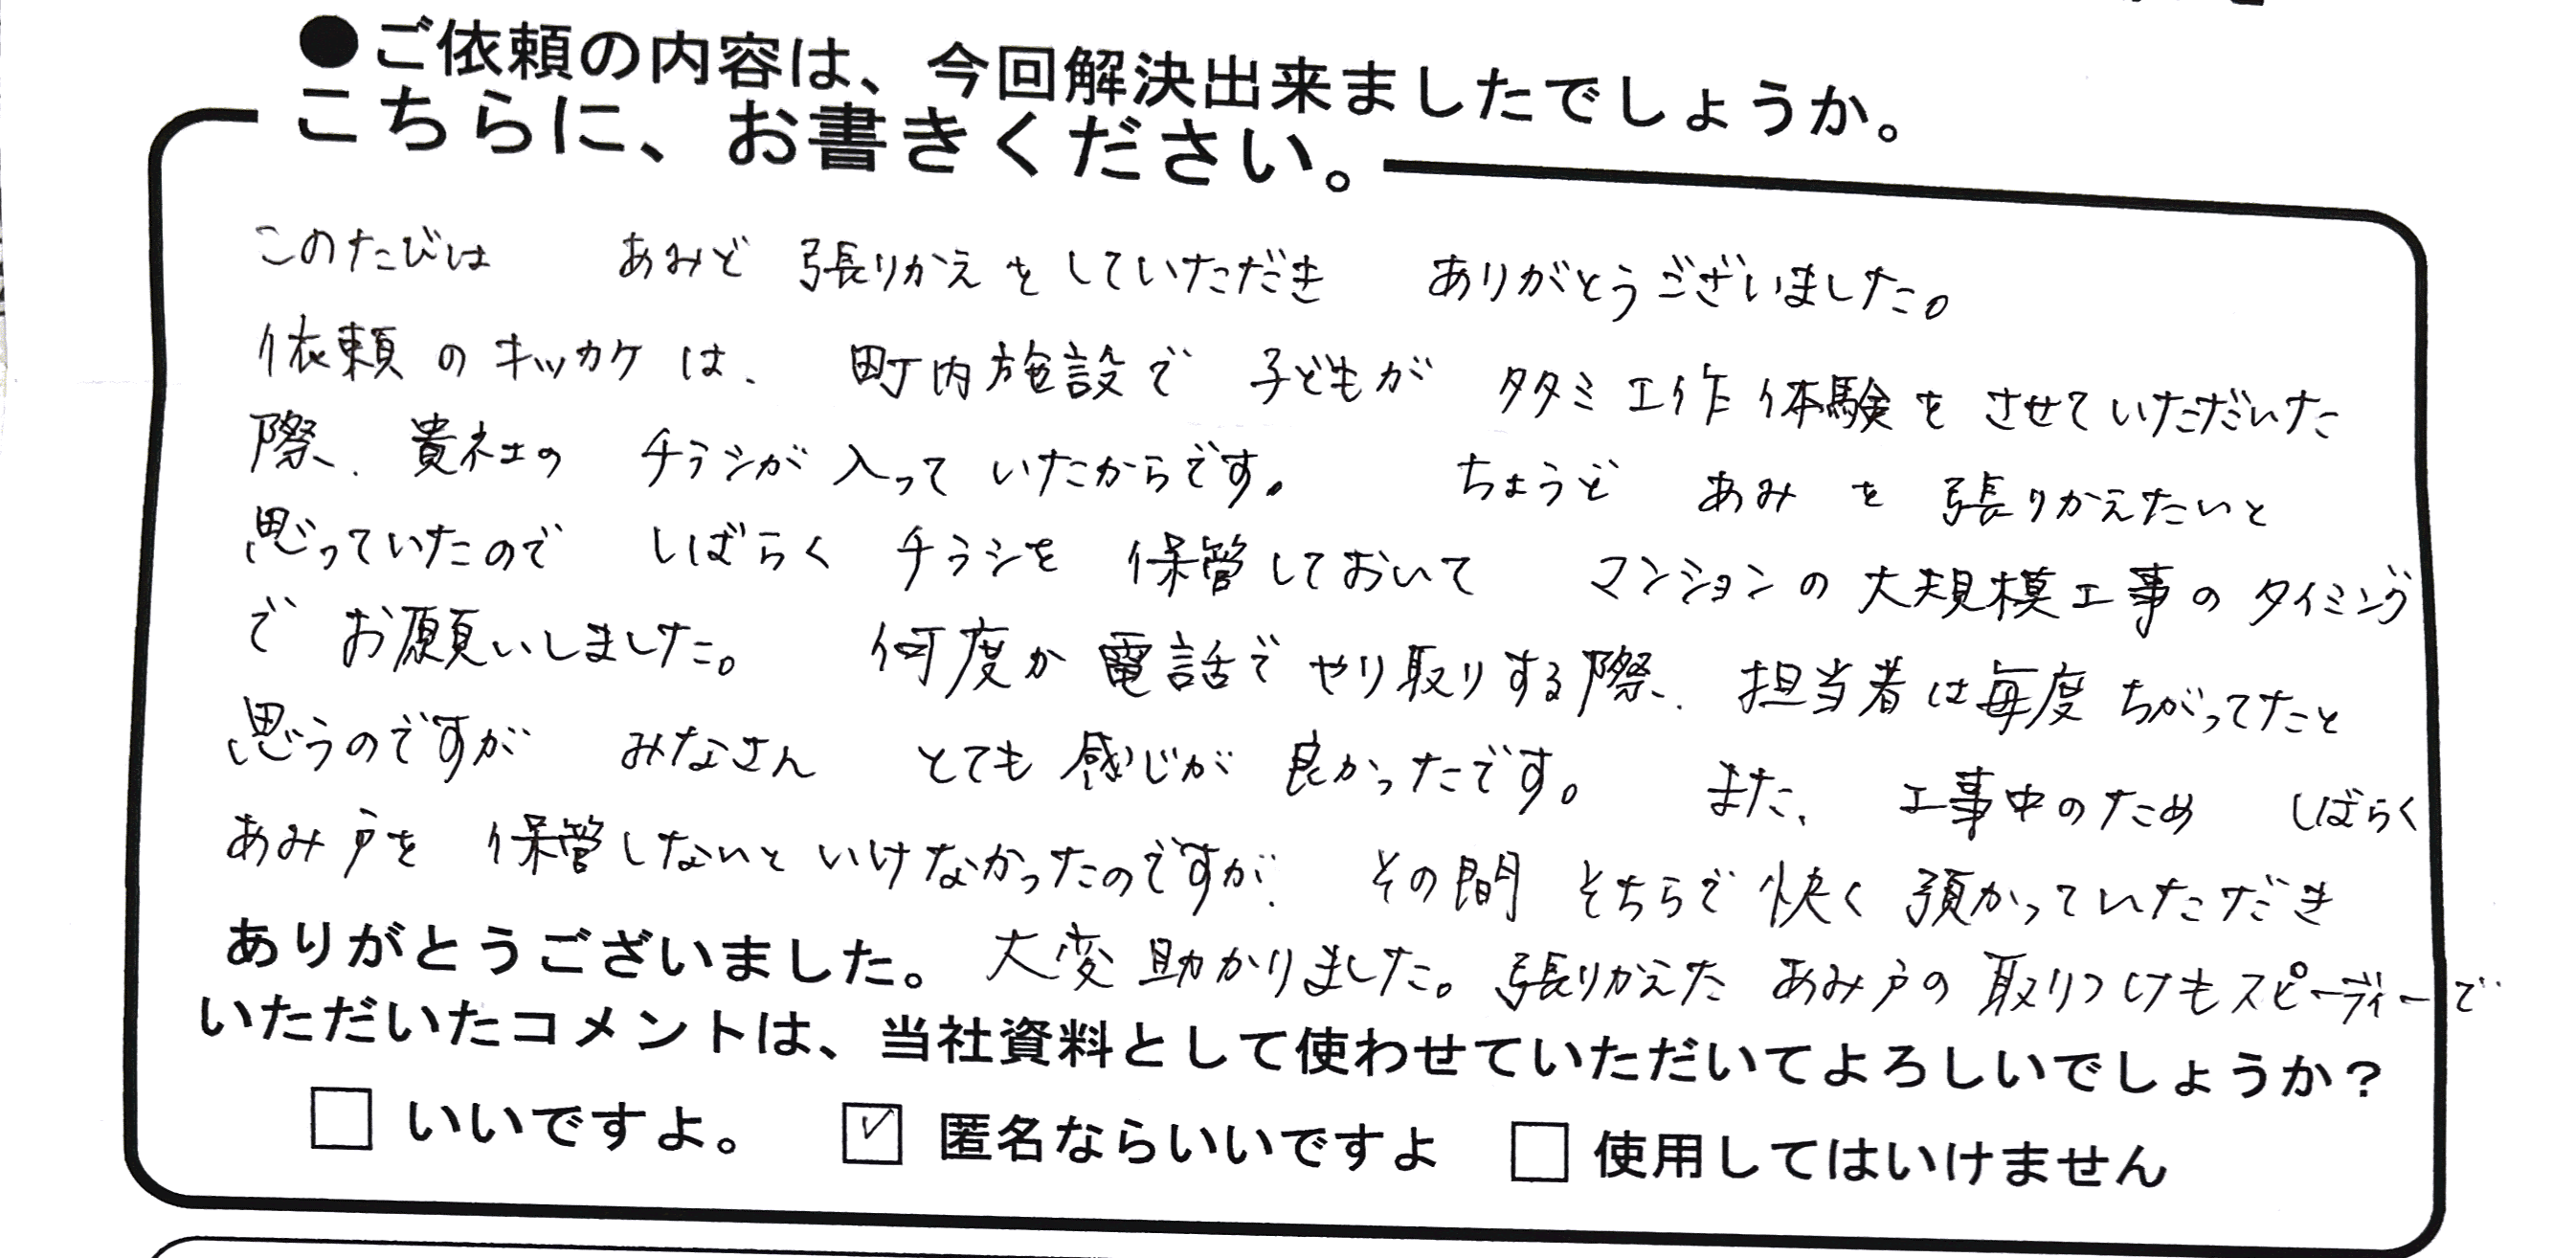 ●ご依頼の内容は、今回解決出来ましたでしょうか。
こちらに、お書きください。
このたびは あみど 張りかえをしていただき ありがとうございました。
依頼のキッカケは、町内施設で 子どもが タタミ工作体験をさせていただいた
際、貴社の チラシが入って いたからです。 ちょうど あみを張りかえたいと
思っていたので しばらく チラシを 保管しておいて マンションの大規模工事のタイミング
で お願いしました。 何度か電話でやり取りする際、担当者は毎度 ちがってたと
思うのですが みなさん とても感じが良かったです。 また、工事中のため しばらく
あみ戸を 保管しないといけなかったのですが、その間 そちらで快く預かっていただき
ありがとうございました。大変助かりました。張りかえた あみ戸の取りつけもスピーディーで
いただいたコメントは、当社資料として使わせていただいてよろしいでしょうか？
□ いいですよ。 ☑ 匿名ならいいですよ □ 使用してはいけません